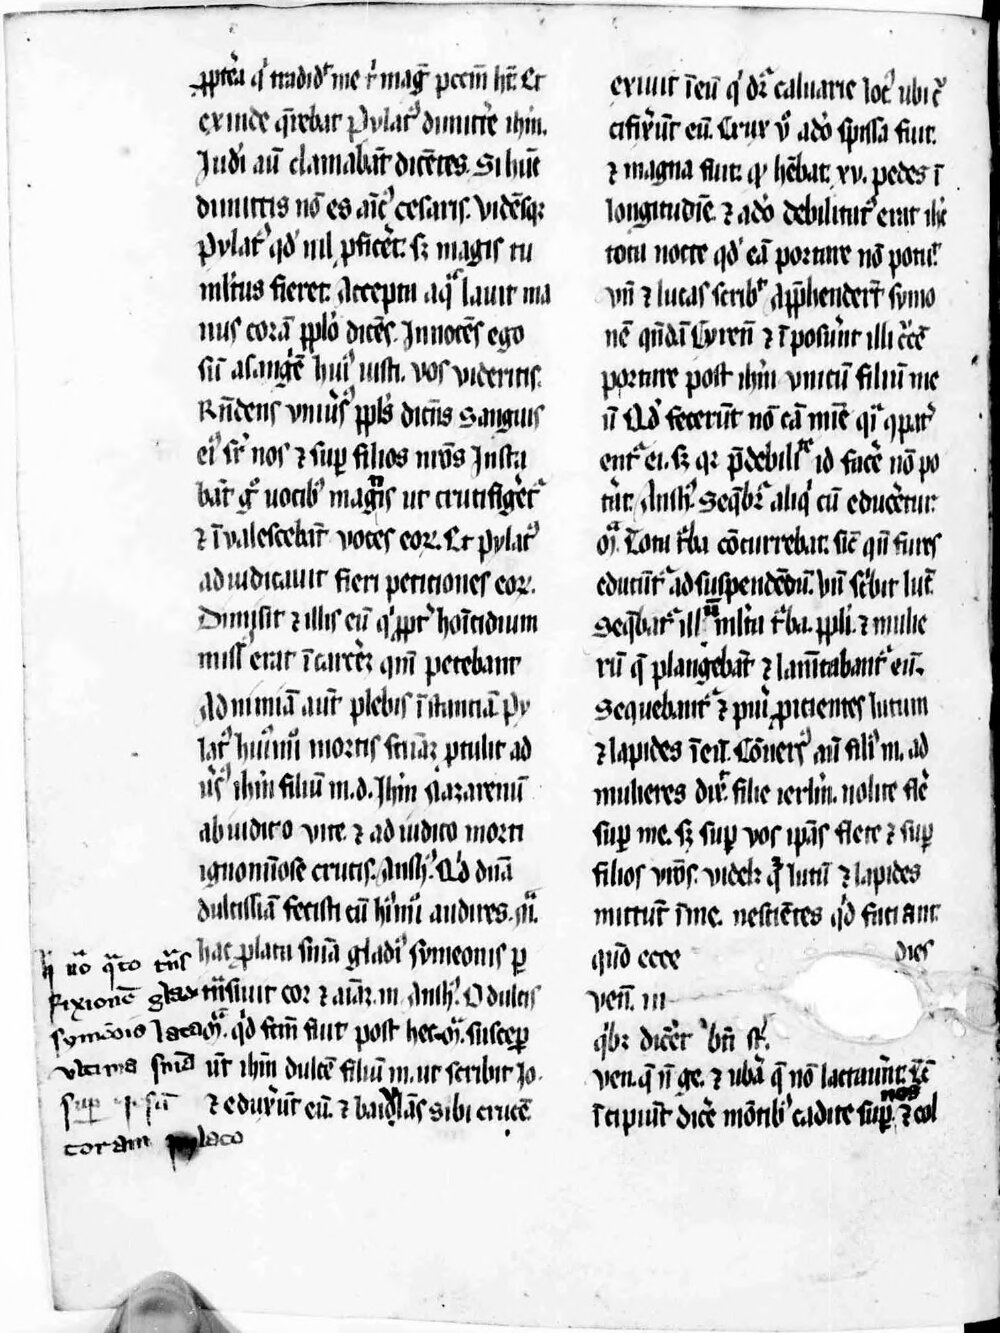 ꝓpt̄ea qͥ tradidͭ me tͥ magꝰ pccm̄ hēt Et
exinde q̄rebat Pylatꝰ dimitte᷑ ihm̄.
Judei aūt clamabāt dicētes. Si hūc
dimittis nō es amīcꝰ cesaris. Vidēsqꝫ
Pylatꝰ qd́ nil ꝓficēt. sꝫ magis tu
mltus fieret. Accepta aqᷓ lauit ma
nus corā pplō dicēs. Innocēs ego
sū a sangīe huiꝰ iusti. vos videritis.
Rn̄dens vniūsꝰ ppls̄ dicēs Sanguis
eiꝰ sr̄ nos ⁊ suꝑ filios nr̄os Insta
bāt gͦ uocibꝰ magnis ut crucifigēt᷑
⁊ īvalescebāt voces eoꝝ. Et pylatꝰ
adiudicauit fieri petitiones eoꝝ.
Dimisit ⁊ illis eū qͥ ꝓpt̄ homīcidium
missꝰ erat ī carcēꝝ quē petebant
Ad nimiā aūt plebis īstantiā Py
latꝰ huīmōi mortis sn̄iaꝝ ꝓtulit ad
ūsꝰ ihm̄ filiū m. d. Ihm̄ Nazarenū
ab iudico vite. ⁊ ad iudico morti
ignomīose crucis. Ansh̄. Qd́ dn̄a
dulcissīa fecisti cū hͥmōi audires. Mͣ.
hac platu sn̄ia gladiꝰ symeonis ꝑ
trn̄siuit cor ⁊ aīaꝝ. m Ansh̄. O dulcis
Mͣ. qd́ fcm̄ fuit post hec. Mͣ. suscep
ūt ihm̄ dulcē filiū m. ut scribit Jo.
⁊ eduxerūt eū. ⁊ baiolās sibi crucē
qͥ uō qͣto
fixionē
symeōis
vltima sn̄ia
suꝑ
coram pylato
exiuit ī eū qͥ dr̄ caluarie locꝰ ubi c̄
cifixerūt eū. Crux v̄o adeo spissa fuit.
⁊ magna fuit. qꝫ hēbat. xv. pedes ī
longitudīe. ⁊ adeo debilitatꝰ erat ihc̄
tota nocte qd́ eā portare nō potuͭ.
vn̄ ⁊ lucas scribit Apphenderūt symo
nē quēdā Cyrenē ⁊ īposuerūt illi crucē
portare post ihm̄ vnicū filiū me
ū Qd́ fecerūt nō cā mīe qͥ cpat᷑
ent᷑ ei. sꝫ qꝛ p̄debilitͣte id face᷑ nō po
tāt. Ansh̄. Seqbr̄ aliqͥ cū educēret᷑.
Mͣ. Tota t᷑ba cōcurrebat. sic qn̄ fures
educūt᷑ ad suspendēdū. vn̄ scͥbit luc̄
Seqbat᷑ illū mltā t᷑ba. ppli. ⁊ mulie
rū q̄ plangebāt ⁊ lamētabant᷑ eū.
Sequebant᷑ ⁊ pueri ꝓicientes lutum
⁊ lapides ī eū. Cōuersꝰ aūt filiꝰ m. ad
mulieres dix̄. filie ierlm̄. nolite fle᷑
suꝑ me. sꝫ suꝑ vos ipās flete ⁊ suꝑ
filios vr̄os. videlꝫ q̄ lutū ⁊ lapides
mittūt ī me. nescientes qd́ faciant.
quō ecce dies
veniēt. in
qͥbꝫ dicēt bt̄i st̄.
ven. q̄ n̄ ge. ⁊ ubā q̄ nō lactauerūt. Tc̄
īcipiūt dice᷑ mōtibꝰ cadite suꝑ nos ⁊ col